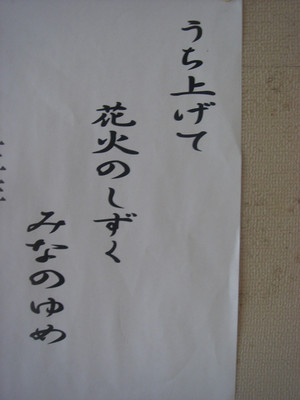 うち上げて
花火のしずく
みなのゆめ